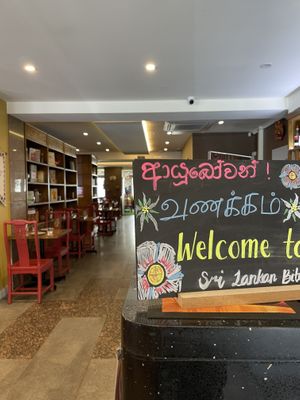 ආයුබෝවන් !
வணக்கம்
Welcome to
Sri Lankan